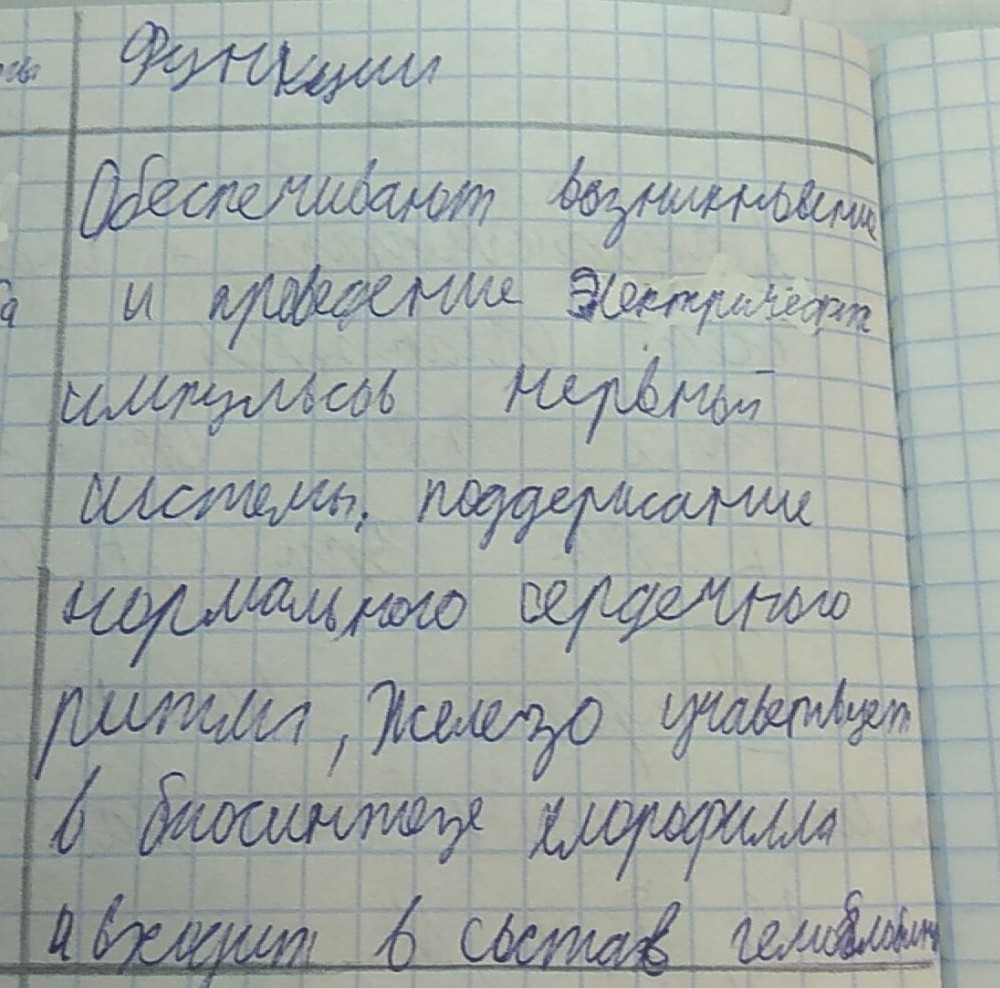 Функции
Обеспечивают возникновение
и проведение электрических
импульсов нервной
системы. поддержание
нормального сердечного
ритма, Железо участвует
в биосинтезе хлорофилла
и входит в состав гемоглобина